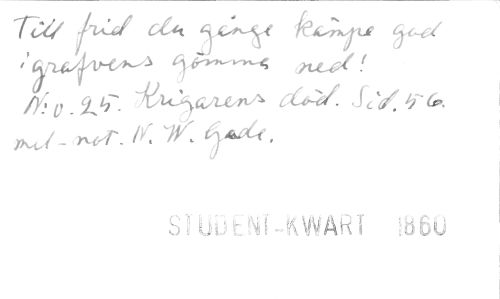 Till frid du gånge kämpe god
i grafvens gömma ned!
N:o. 25. Krigarens död. Sid. 56.
mel-not. N. W. Gade.
STUDENT-KWART 1860